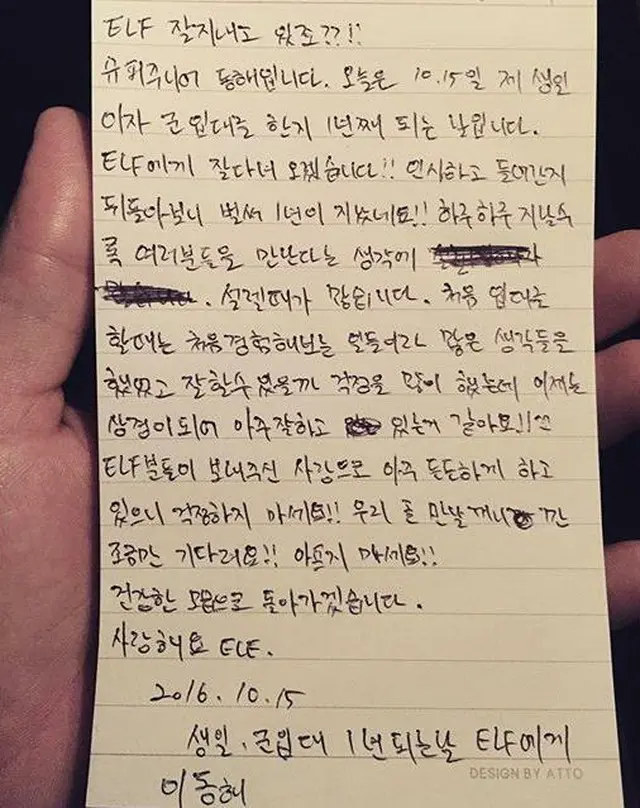 ELF 잘지내고 있죠??!!
슈퍼주니어 동해입니다. 오늘은 10.15일 제 생일
이자 군입대를 한지 1년째 되는 날입니다.
ELF에게 잘다녀 오겠습니다!! 인사하고 들어간지
뒤돌아보니 벌써 1년이 지났네요!! 하루하루 지날수
록 여러분들을 만난다는 생각에
. 설렐때가 많습니다. 처음 입대를
할때는 처음경험해보는 일들이라 많은 생각들을
했었고 잘할수 있을까 걱정을 많이 했는데 이제는
상경이되어 아주잘하고 있는거 같아요!!^^
ELF분들이 보내주신 사랑으로 아주 든든하게 하고
있으니 걱정하지 마세요!! 우리 곧 만날꺼니깐
조금만 기다려요!! 아프지 마세요!!
건강한 모습으로 돌아가겠습니다.
사랑해요 ELF.
2016.10.15
생일, 군입대 1년되는날 ELF에게
DESIGN BY ATTO
이동해